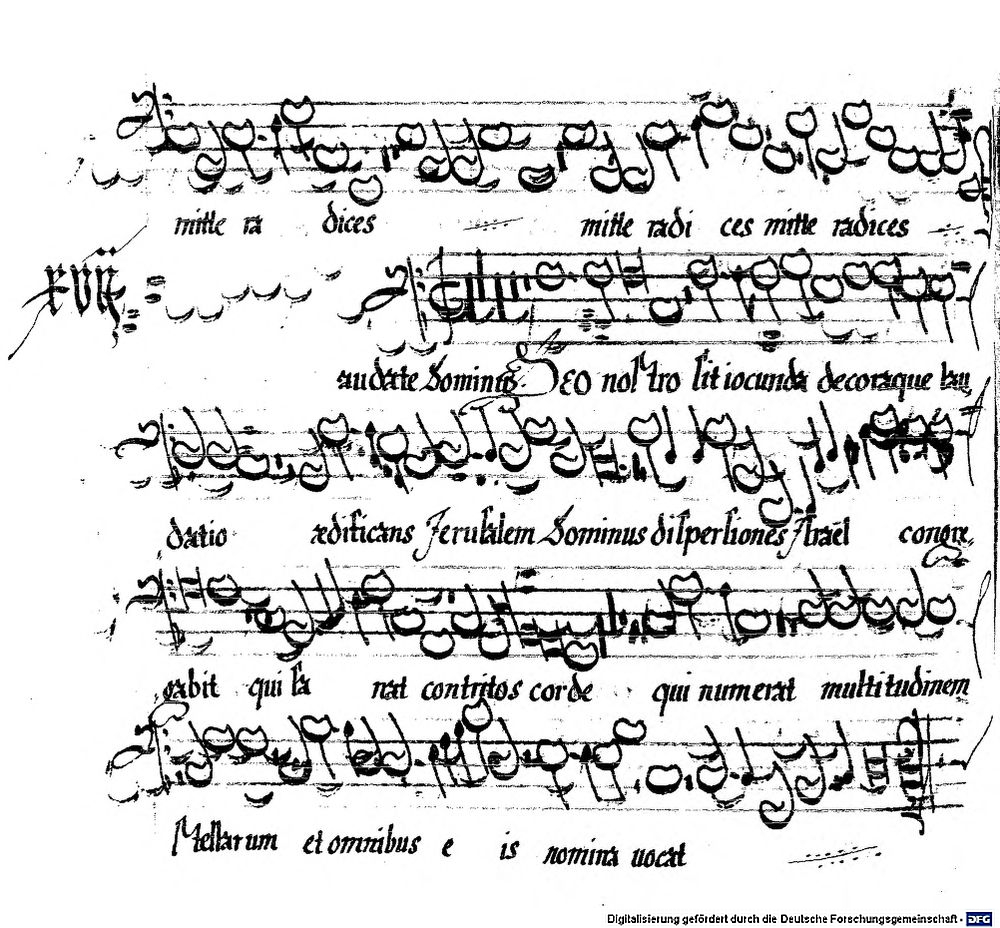 mitte ra dices mitte radi ces mitte radices
XVII
audate Dominū Deo nostro sit iocunda decoraque lau
datio ædificans Jerusalem Dominus dispersiones Israël congre
gabit qui sa nat contritos corde qui numerat multitudinem
stellarum et omnibus e is nomina uocat
Digitalisierung gefördert durch die Deutsche Forschungsgemeinschaft - DFG